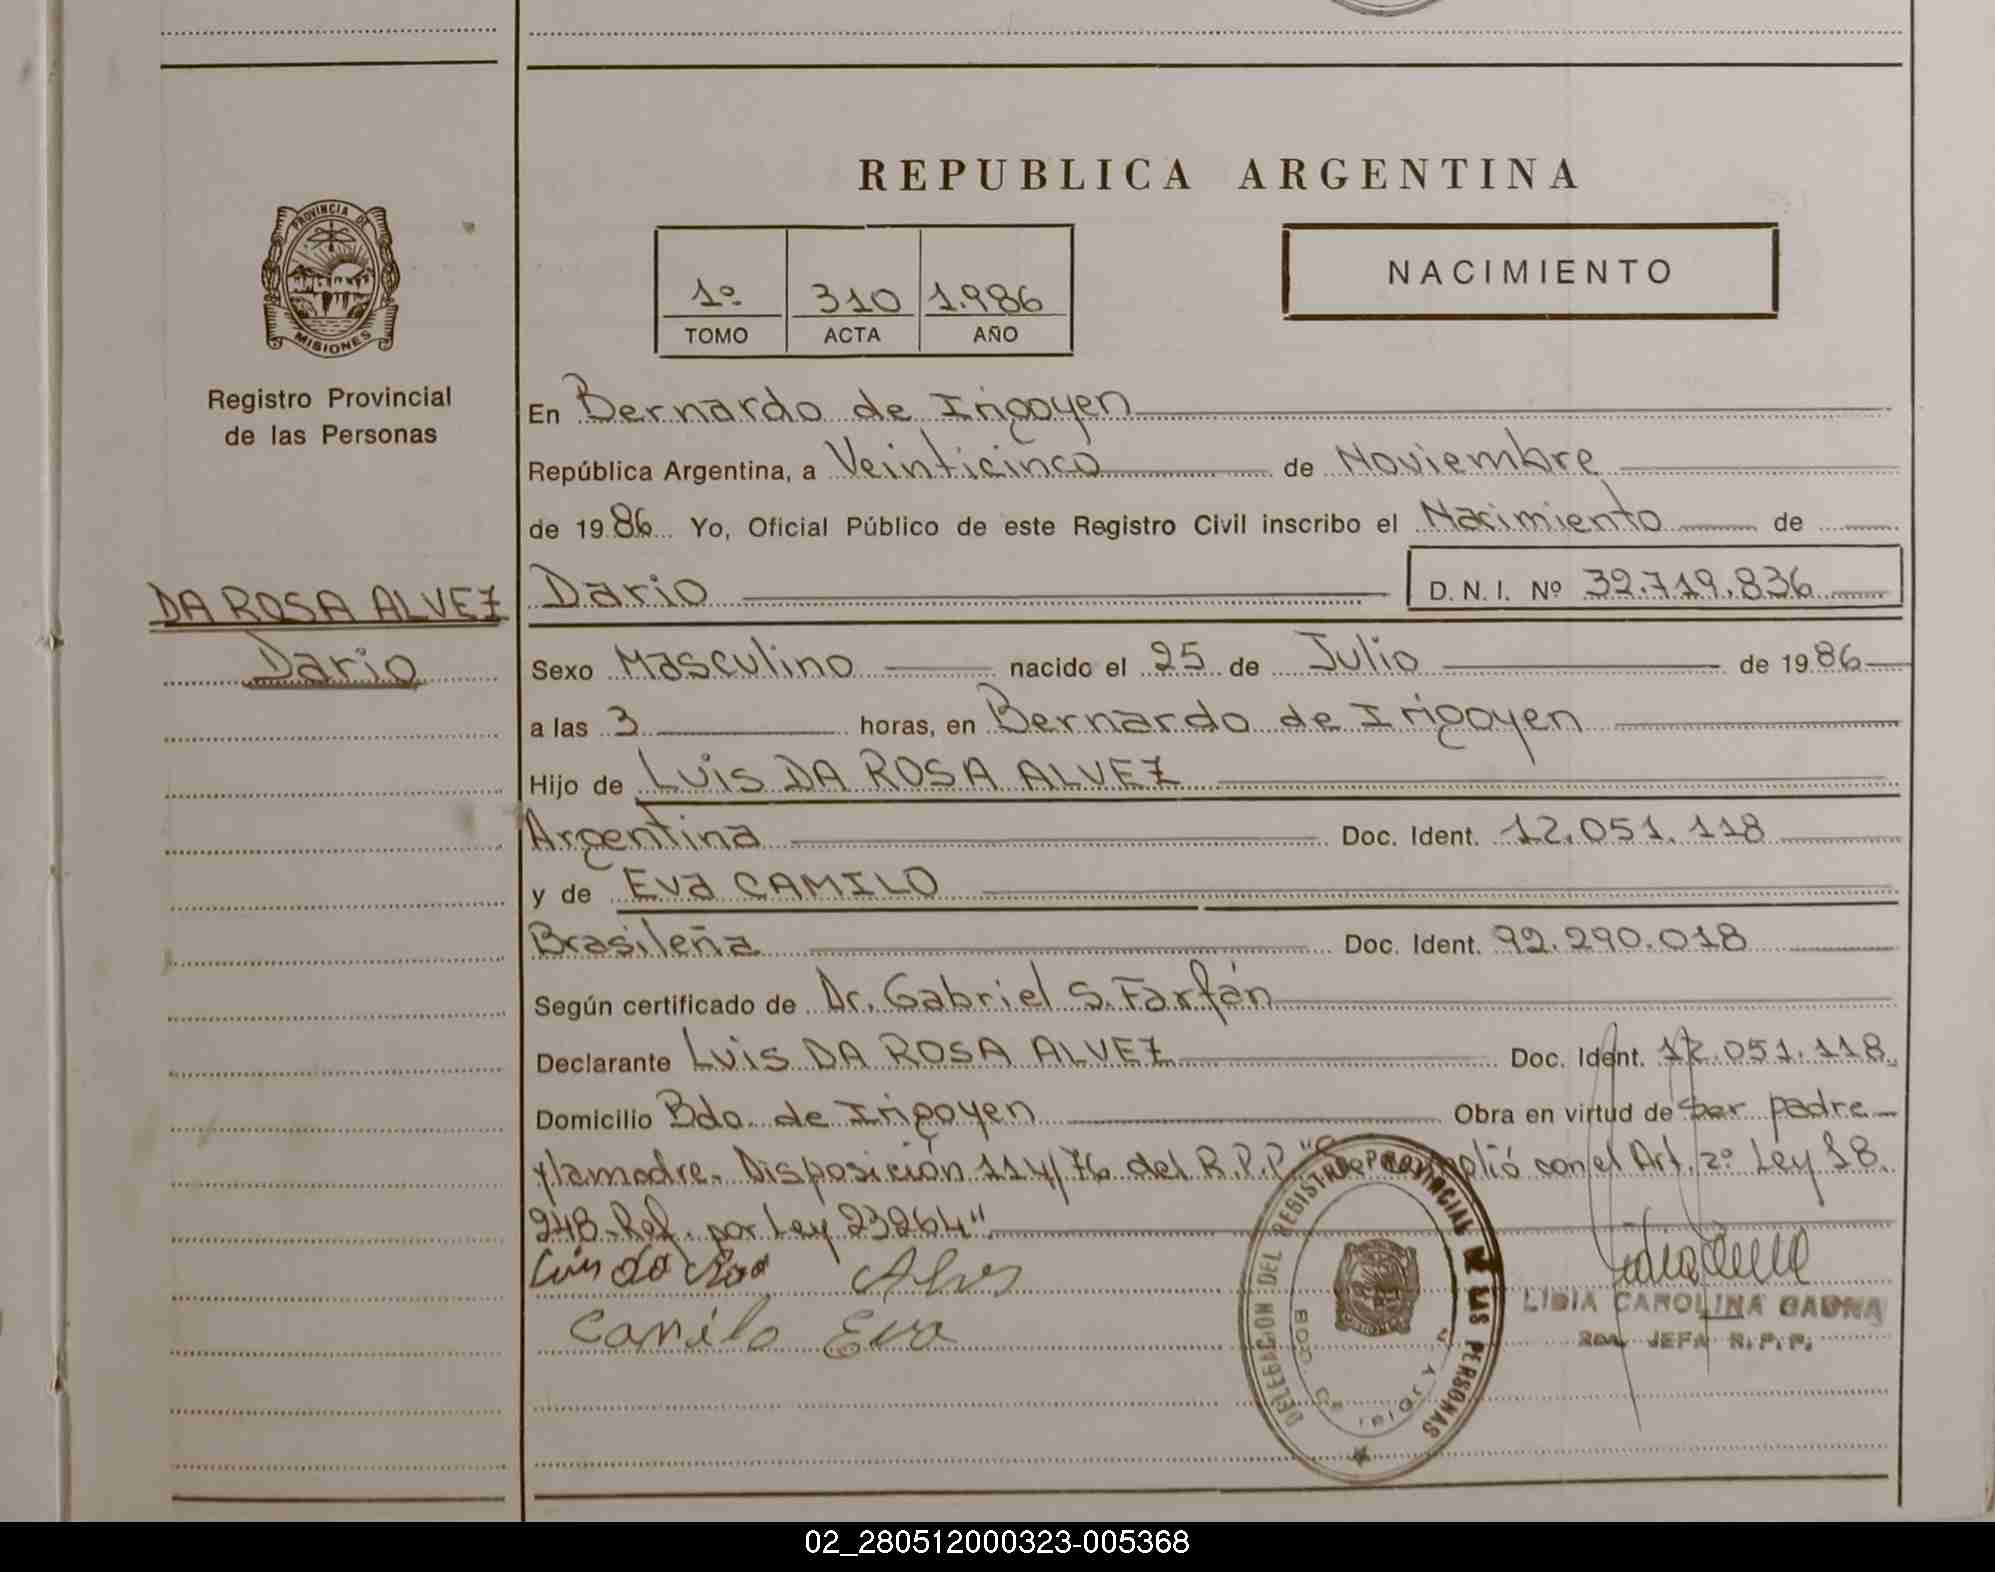 REPUBLICA ARGENTINA
PROVINCIA DE
MISIONES
Registro Provincial
de las Personas
1º 310 1.986
TOMO ACTA AÑO
NACIMIENTO
En Bernardo de Irigoyen
República Argentina, a Veinticinco de Noviembre
de 1986 Yo, Oficial Público de este Registro Civil inscribo el Nacimiento de
DA ROSA ALVEZ
Dario
Dario D. N. I. Nº 32.719.836
Sexo Masculino nacido el 25 de Julio de 1986
a las 3 horas, en Bernardo de Irigoyen
Hijo de Luis DA ROSA ALVEZ
Argentina Doc. Ident. 12.051.118
y de Eva CAMILO
Brasileña Doc. Ident. 92.290.018
Según certificado de Dr. Gabriel S. Farfán
Declarante Luis DA ROSA ALVEZ Doc. Ident. 12.051.118
Domicilio Bdo. de Irigoyen Obra en virtud de ser padre
y la madre. Disposición 114/76 del R.P.P. "Se cumplió con el Art. 2º Ley 18.
248-Ref. por Ley 23264"
Luis da Rosa Alves
Camilo Eva
DELEGACION DEL REGISTRO PROVINCIAL DE LAS PERSONAS
LIDIA CAROLINA GAUNA
JEFA R.P.P.
02_280512000323-005368